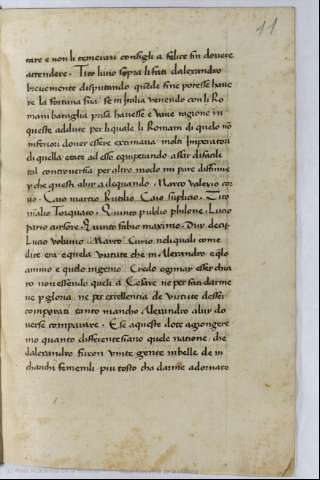 11
tare e non li temerari consigli a felice fin dovere
attendere. Tito livio sopra li fati dalexandro
brevemente disputando, quale fine potesse have
re la fortuna sua, se in Italia venendo con li Ro
mani bataglia presa havesse e varie ragione in
queste addute per le quale li Romani di quelo no
inferiori dover essere extimava molti Imperatori
di quella etate ad esso equiperando assai disaclc
tal controversia per altro modo mi pare diffinire
che questi altri adequando. Marco valerio cor
vo. Caio martio Rutilio. Caio sulpitio. Tito
manlio Torquato. Quinto publio philone. Lucio
papirio cursore. Quinto fabio maximo. Dui decii
Lucio volunio. Marco Curio neli quali come
dice era e quela virtute che in Alexandro e qlo
animo e quelo ingenio. Credo ogimai esser chia
ro non essendo queli a Cesare ne per fati darme
ne p gloria, ne per excellentia de virtute desser
comparati tanto mancho Alexandro alui do
verse comparare. E se a queste dote agiongere
mo quanto differente siano quele natione, che
dalexandro furon vinte gente imbelle de in
charichi femenili piu tosto cha darme adornato